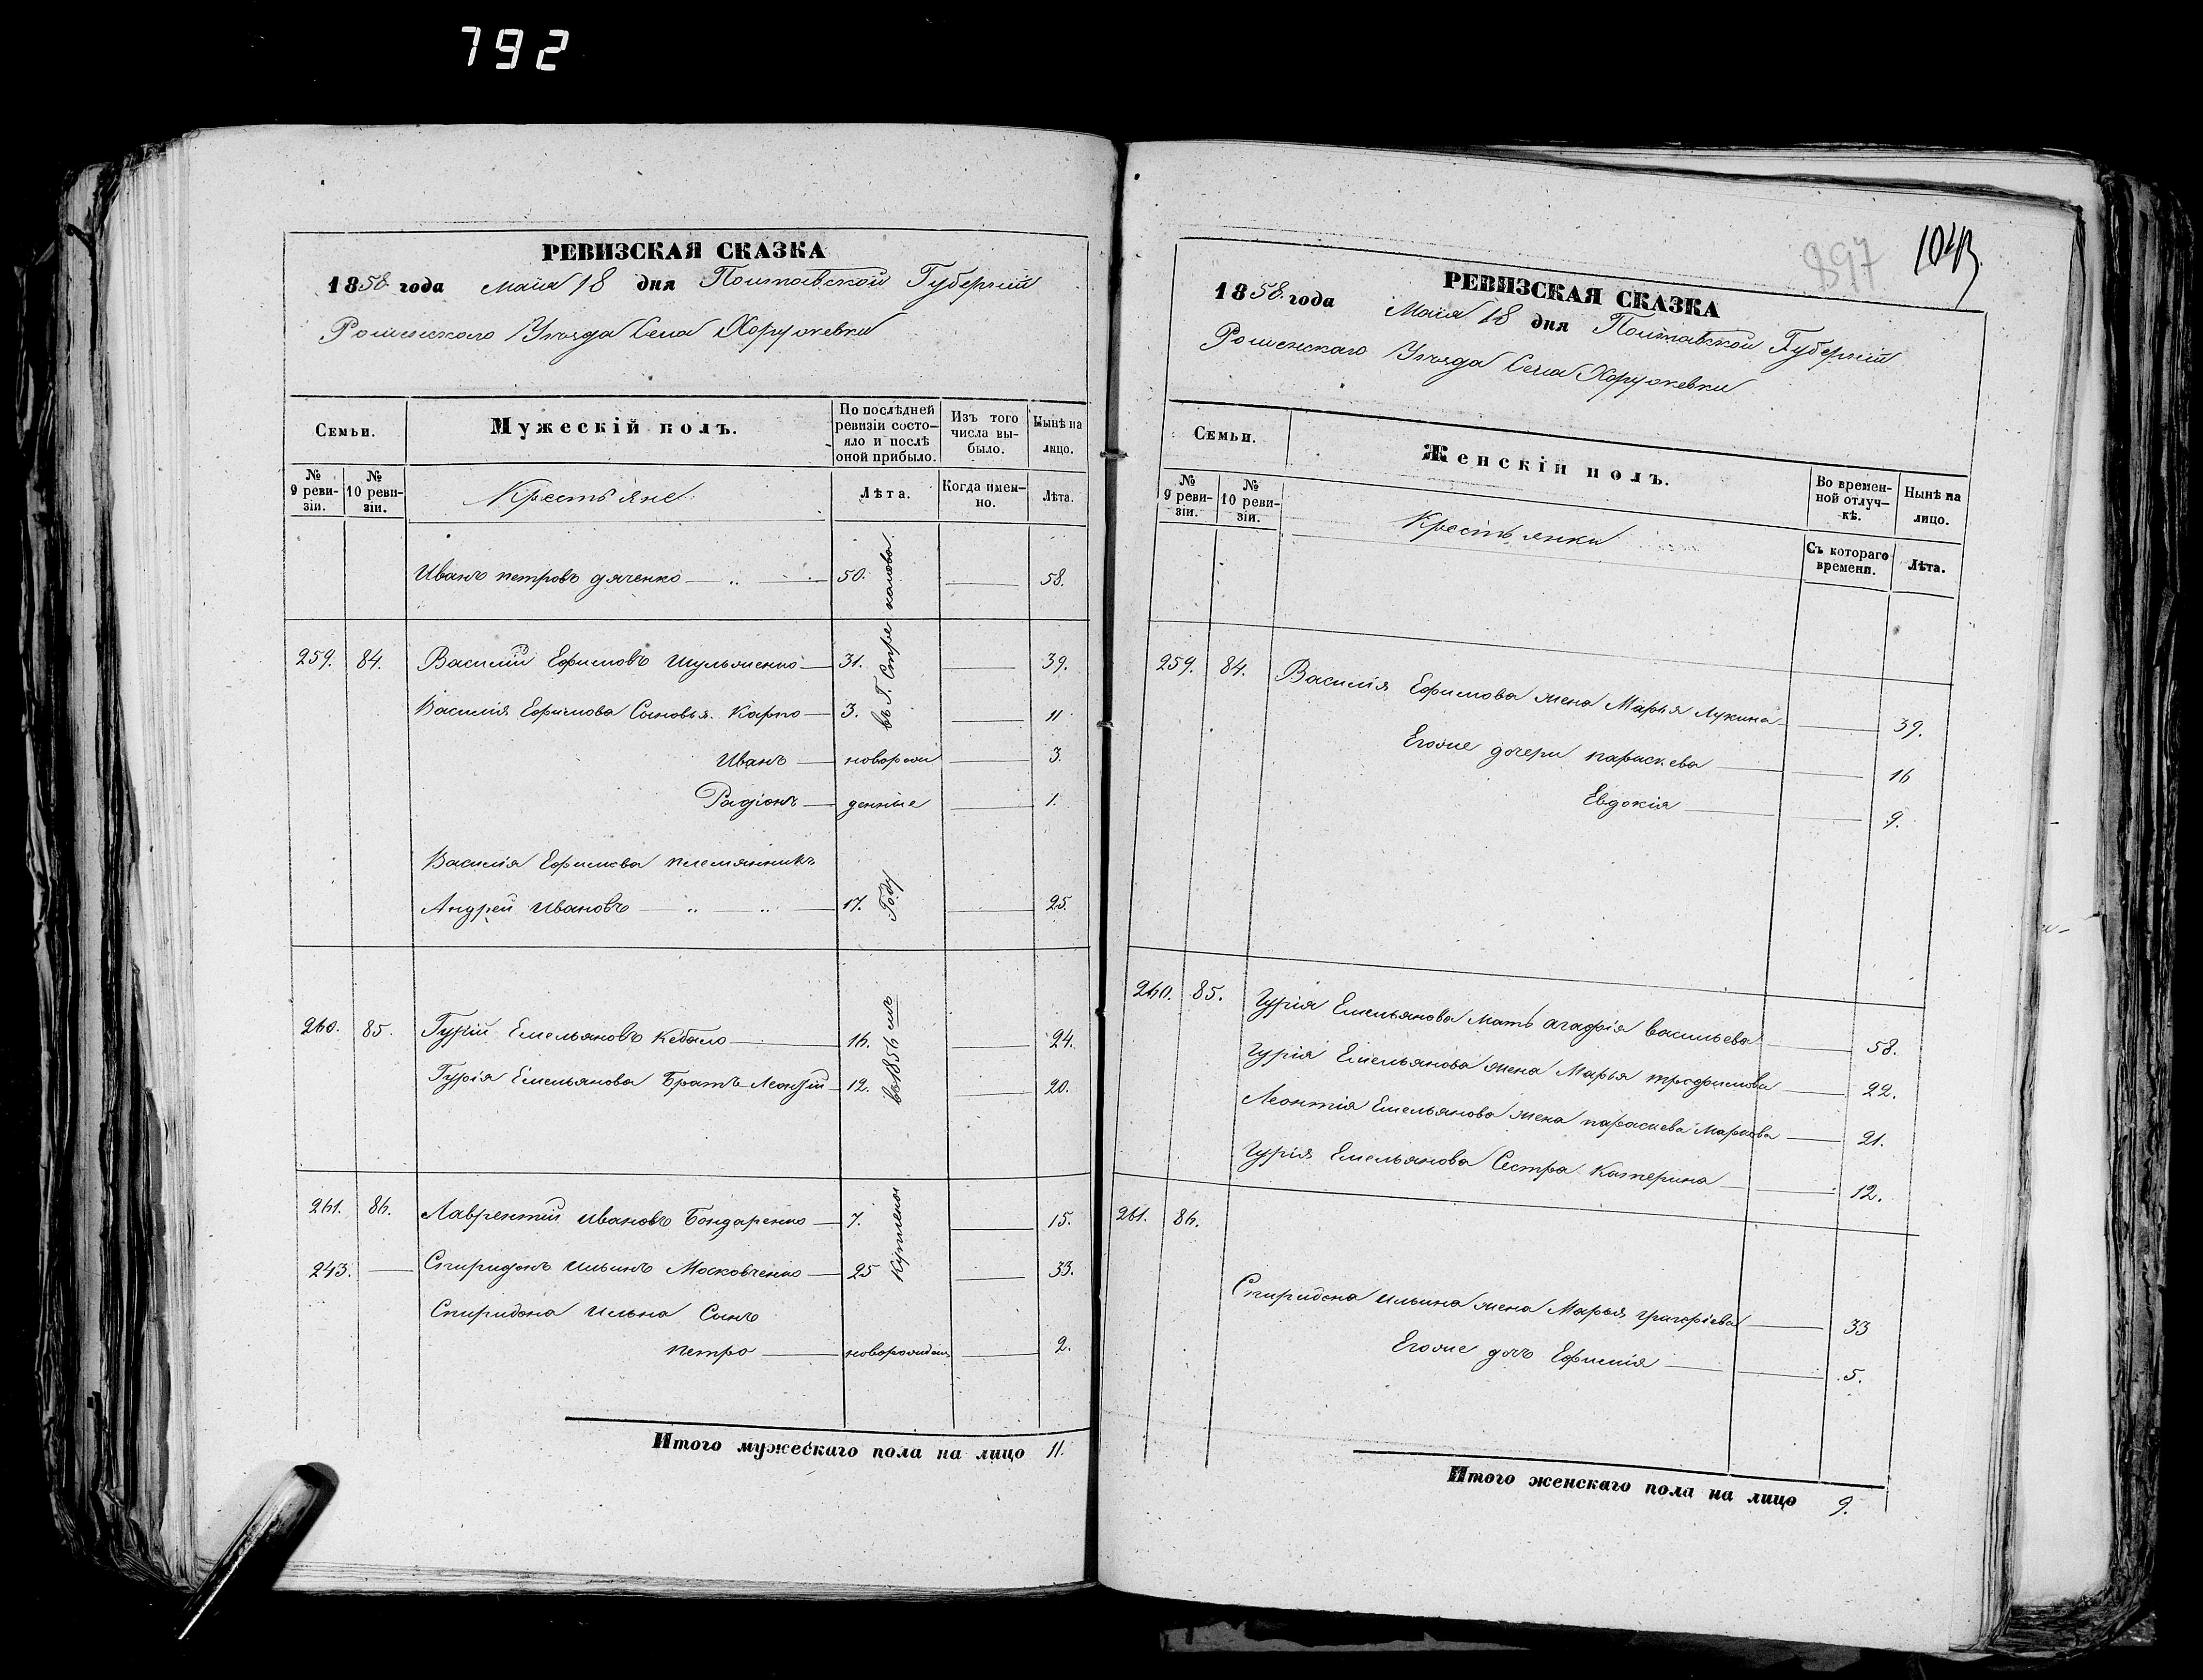 792
РЕВИЗСКАЯ СКАЗКА
1858 года маия 18 дня Полтавской Губернии
Роменского Уъзда Села Хоружевки
Семьи.
Мужескій полъ.
По послѣдней ревизіи состо-яло и послѣ оной прибыло.
Изъ того числа вы-было.
Нынѣ на лицо.
№ 9 реви-зіи.
№ 10 реви-зіи.
Крестьяне
Лѣта.
Когда имен-но.
Лѣта.
Иванъ петровъ дяченко 50. 58.
259. 84. Василій Ефимовъ Шульженко 31. 39.
Василія Ефимова Сыновья. Карпо 3. 11
Иванъ новорож 3.
Радіонъ денные 1.
Василія Ефимова племянникъ
Андрей Ивановъ 17. 25.
260. 85. Гурій Емельяновъ Кебало 16. 24.
Гурія Емельянова Братъ Леонтій 12. 20.
261. 86. Лаврентій Ивановъ Бондаренко 7. 15.
243. Спиридонъ Ильинъ Московченко 25 33.
Спиридона Ильина Сынъ
петро новорожден 2.
Куплены въ 1856 мъ Году въ Г.
Итого мужескаго пола на лицо 11.
897 1043
РЕВИЗСКАЯ СКАЗКА
1858. года Маия 18 дня Полтавской Губерніи
Роменскаго Уъзда Села Хоружевки
Семьи.
Женскій полъ.
Во времен-ной отлуч-кѣ.
Нынѣ на лицо.
№ 9 реви-зіи.
№ 10 реви-зіи.
Крестьянки
Съ котораго времени.
Лѣта.
259. 84. Василія Ефимова жена Марья Лукина 39.
Егоже дочери параскева 16
Евдокія 9.
260. 85. Гурія Емельянова мать агафія васильева 58.
Гурія Емельянова жена Марья трофимова 22.
Леонтія Емельянова жена параскева Маркова 21.
Гурія Емельянова Сестра Катерина 12.
261. 86.
Спиридона Ильина жена Марья григоріева 33
Егоже дочь Ефимія 5.
Итого женскаго пола на лицо 9.